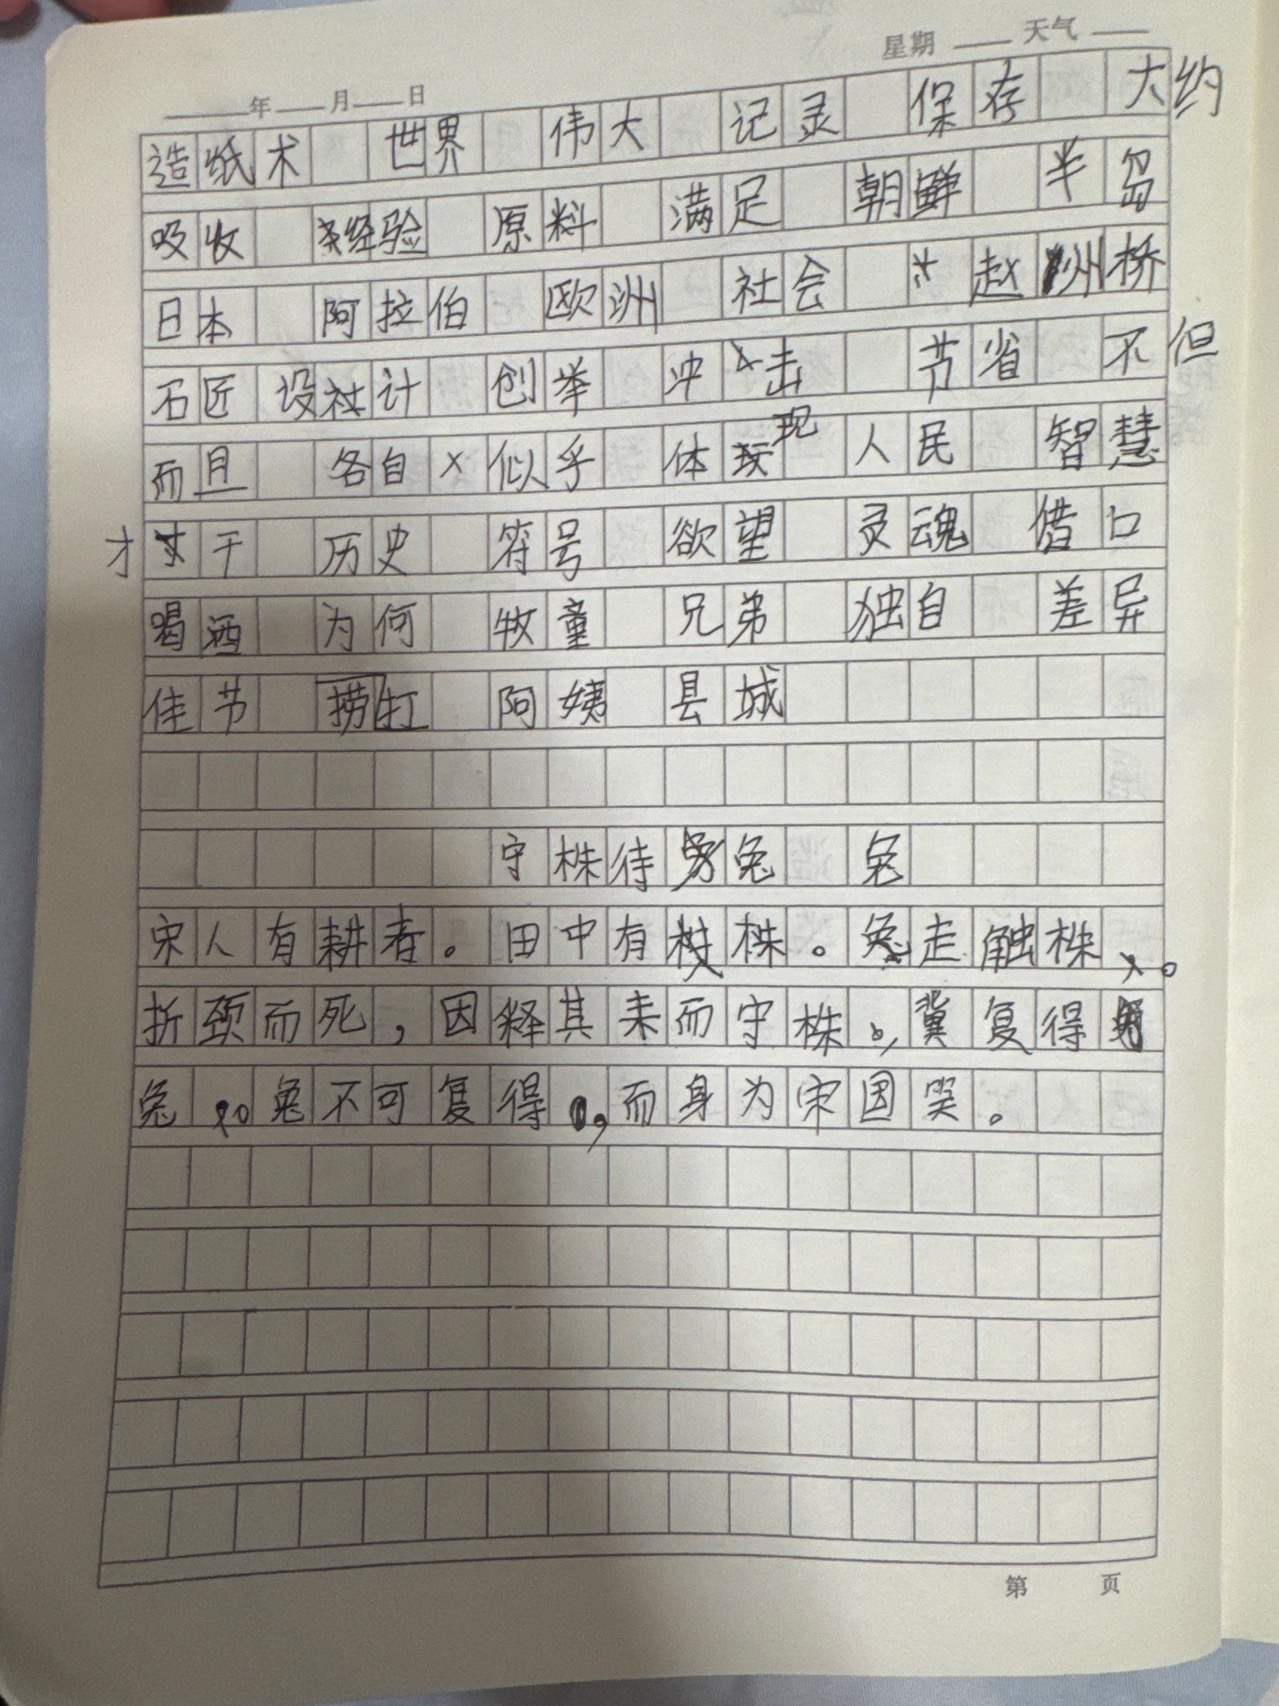 星期 天气
年 月 日
造纸术 世界 伟大 记录 保存 大约
吸收 经验 原料 满足 朝鲜 半岛
日本 阿拉伯 欧洲 社会 赵州桥
石匠 设计 创举 冲击 节省 不但
而且 各自 似乎 体现 人民 智慧
才干 历史 符号 欲望 灵魂 借口
喝酒 为何 牧童 兄弟 独自 差异
佳节 捞打 阿姨 县城
守株待兔 兔
宋人有耕者。田中有株。兔走触株。
折颈而死,因释其耒而守株,冀复得
兔。兔不可复得,而身为宋国笑。
第 页